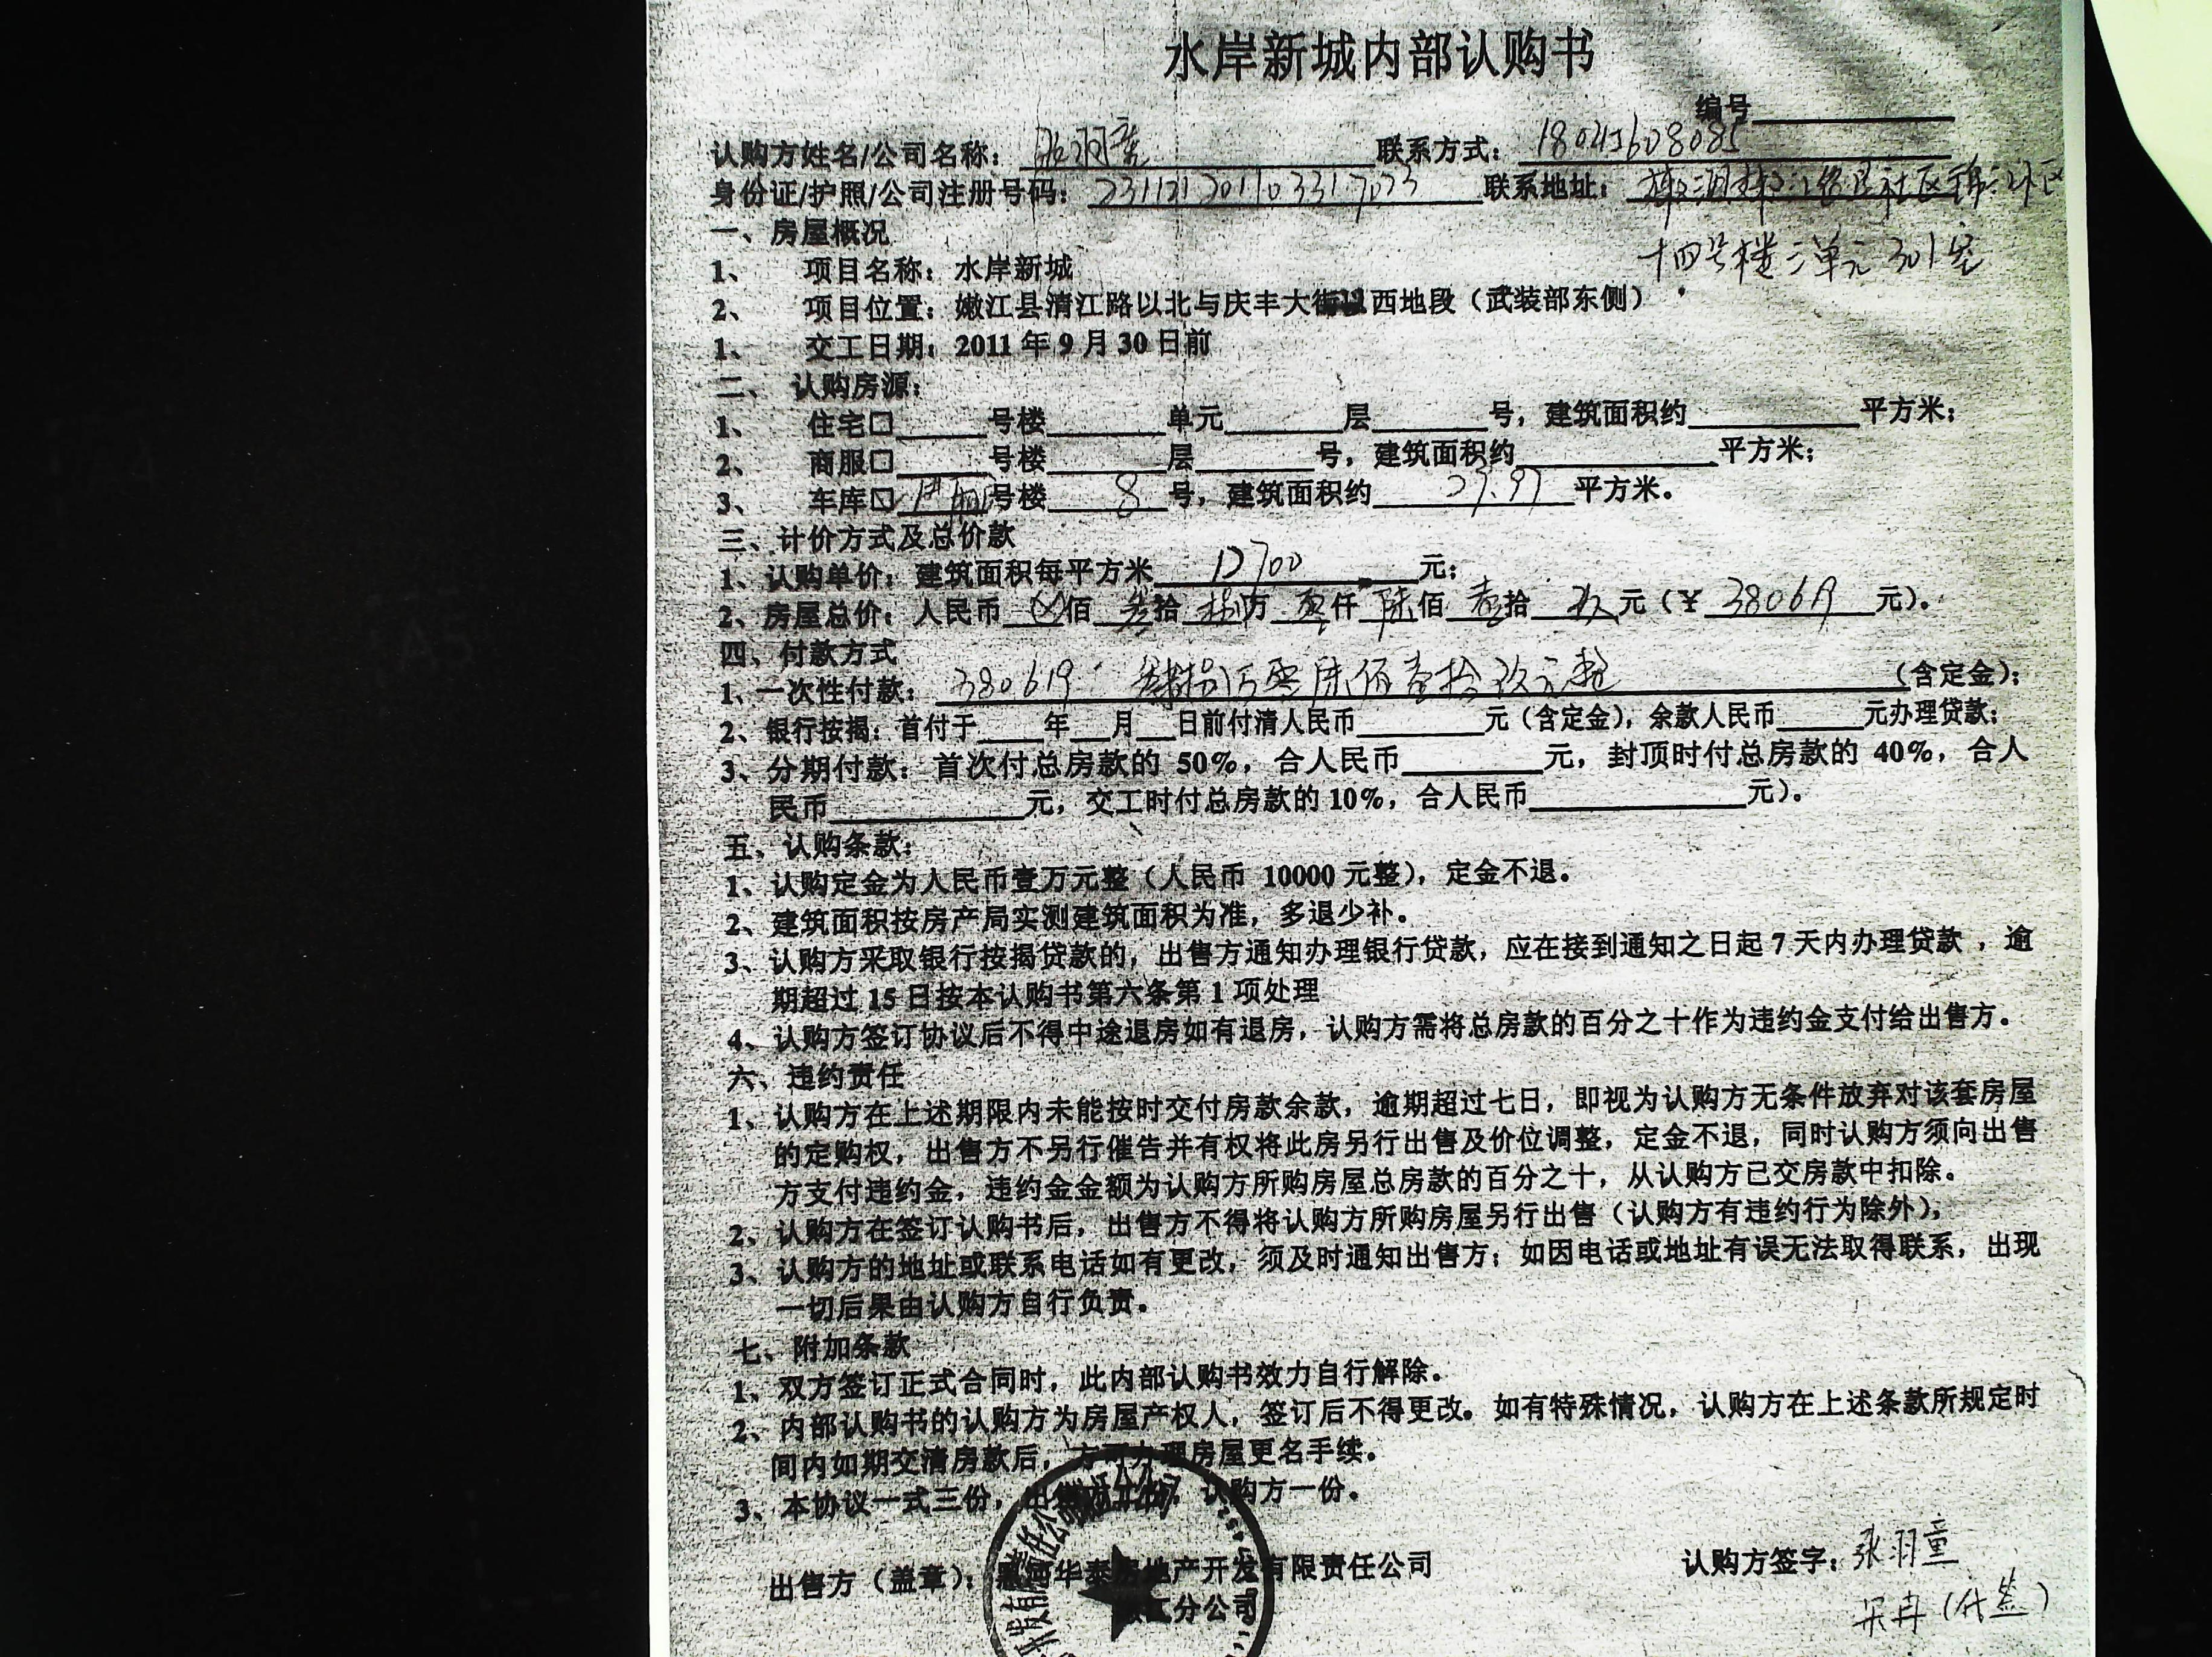 水岸新城内部认购书
编号
认购方姓名/公司名称：张羽童 联系方式：18045608085
身份证/护照/公司注册号码：231121201103317023 联系地址：
十四号楼三单元301室
一、房屋概况
1、 项目名称：水岸新城
2、 项目位置：嫩江县清江路以北与庆丰大街以西地段（武装部东侧）
1、 交工日期：2011年9月30日前
二、认购房源：
1、 住宅□ 号楼 单元 层 号，建筑面积约 平方米；
2、 商服□ 号楼 层 号，建筑面积约 平方米；
3、 车库☑ 号楼 8 号，建筑面积约 29.97 平方米。
三、计价方式及总价款
1、认购单价：建筑面积每平方米 12700 元；
2、房屋总价：人民币 佰 叁拾 捌万 零仟 陆佰 壹拾 玖元（¥ 380619 元）。
四、付款方式
1、一次性付款：380619. 叁拾捌万零陆佰壹拾玖元整（含定金）；
2、银行按揭：首付于 年 月 日前付清人民币 元（含定金），余款人民币 元办理贷款；
3、分期付款：首次付总房款的 50%，合人民币 元，封顶时付总房款的 40%，合人
民币 元，交工时付总房款的10%，合人民币 元）。
五、认购条款：
1、认购定金为人民币壹万元整（人民币 10000 元整），定金不退。
2、建筑面积按房产局实测建筑面积为准，多退少补。
3、认购方采取银行按揭贷款的，出售方通知办理银行贷款，应在接到通知之日起 7 天内办理贷款，逾
期超过 15 日按本认购书第六条第 1 项处理
4、认购方签订协议后不得中途退房如有退房，认购方需将总房款的百分之十作为违约金支付给出售方。
六、违约责任
1、认购方在上述期限内未能按时交付房款余款，逾期超过七日，即视为认购方无条件放弃对该套房屋
的定购权，出售方不另行催告并有权将此房另行出售及价位调整，定金不退，同时认购方须向出售
方支付违约金，违约金金额为认购方所购房屋总房款的百分之十，从认购方已交房款中扣除。
2、认购方在签订认购书后，出售方不得将认购方所购房屋另行出售（认购方有违约行为除外），
3、认购方的地址或联系电话如有更改，须及时通知出售方；如因电话或地址有误无法取得联系，出现
一切后果由认购方自行负责。
七、附加条款
1、双方签订正式合同时，此内部认购书效力自行解除。
2、内部认购书的认购方为房屋产权人，签订后不得更改。如有特殊情况，认购方在上述条款所规定时
间内如期交清房款后，方可办理房屋更名手续。
3、本协议一式三份，出售方二份，认购方一份。
出售方（盖章）：华泰房地产开发有限责任公司
认购方签字：张羽童
分公司
（代签）